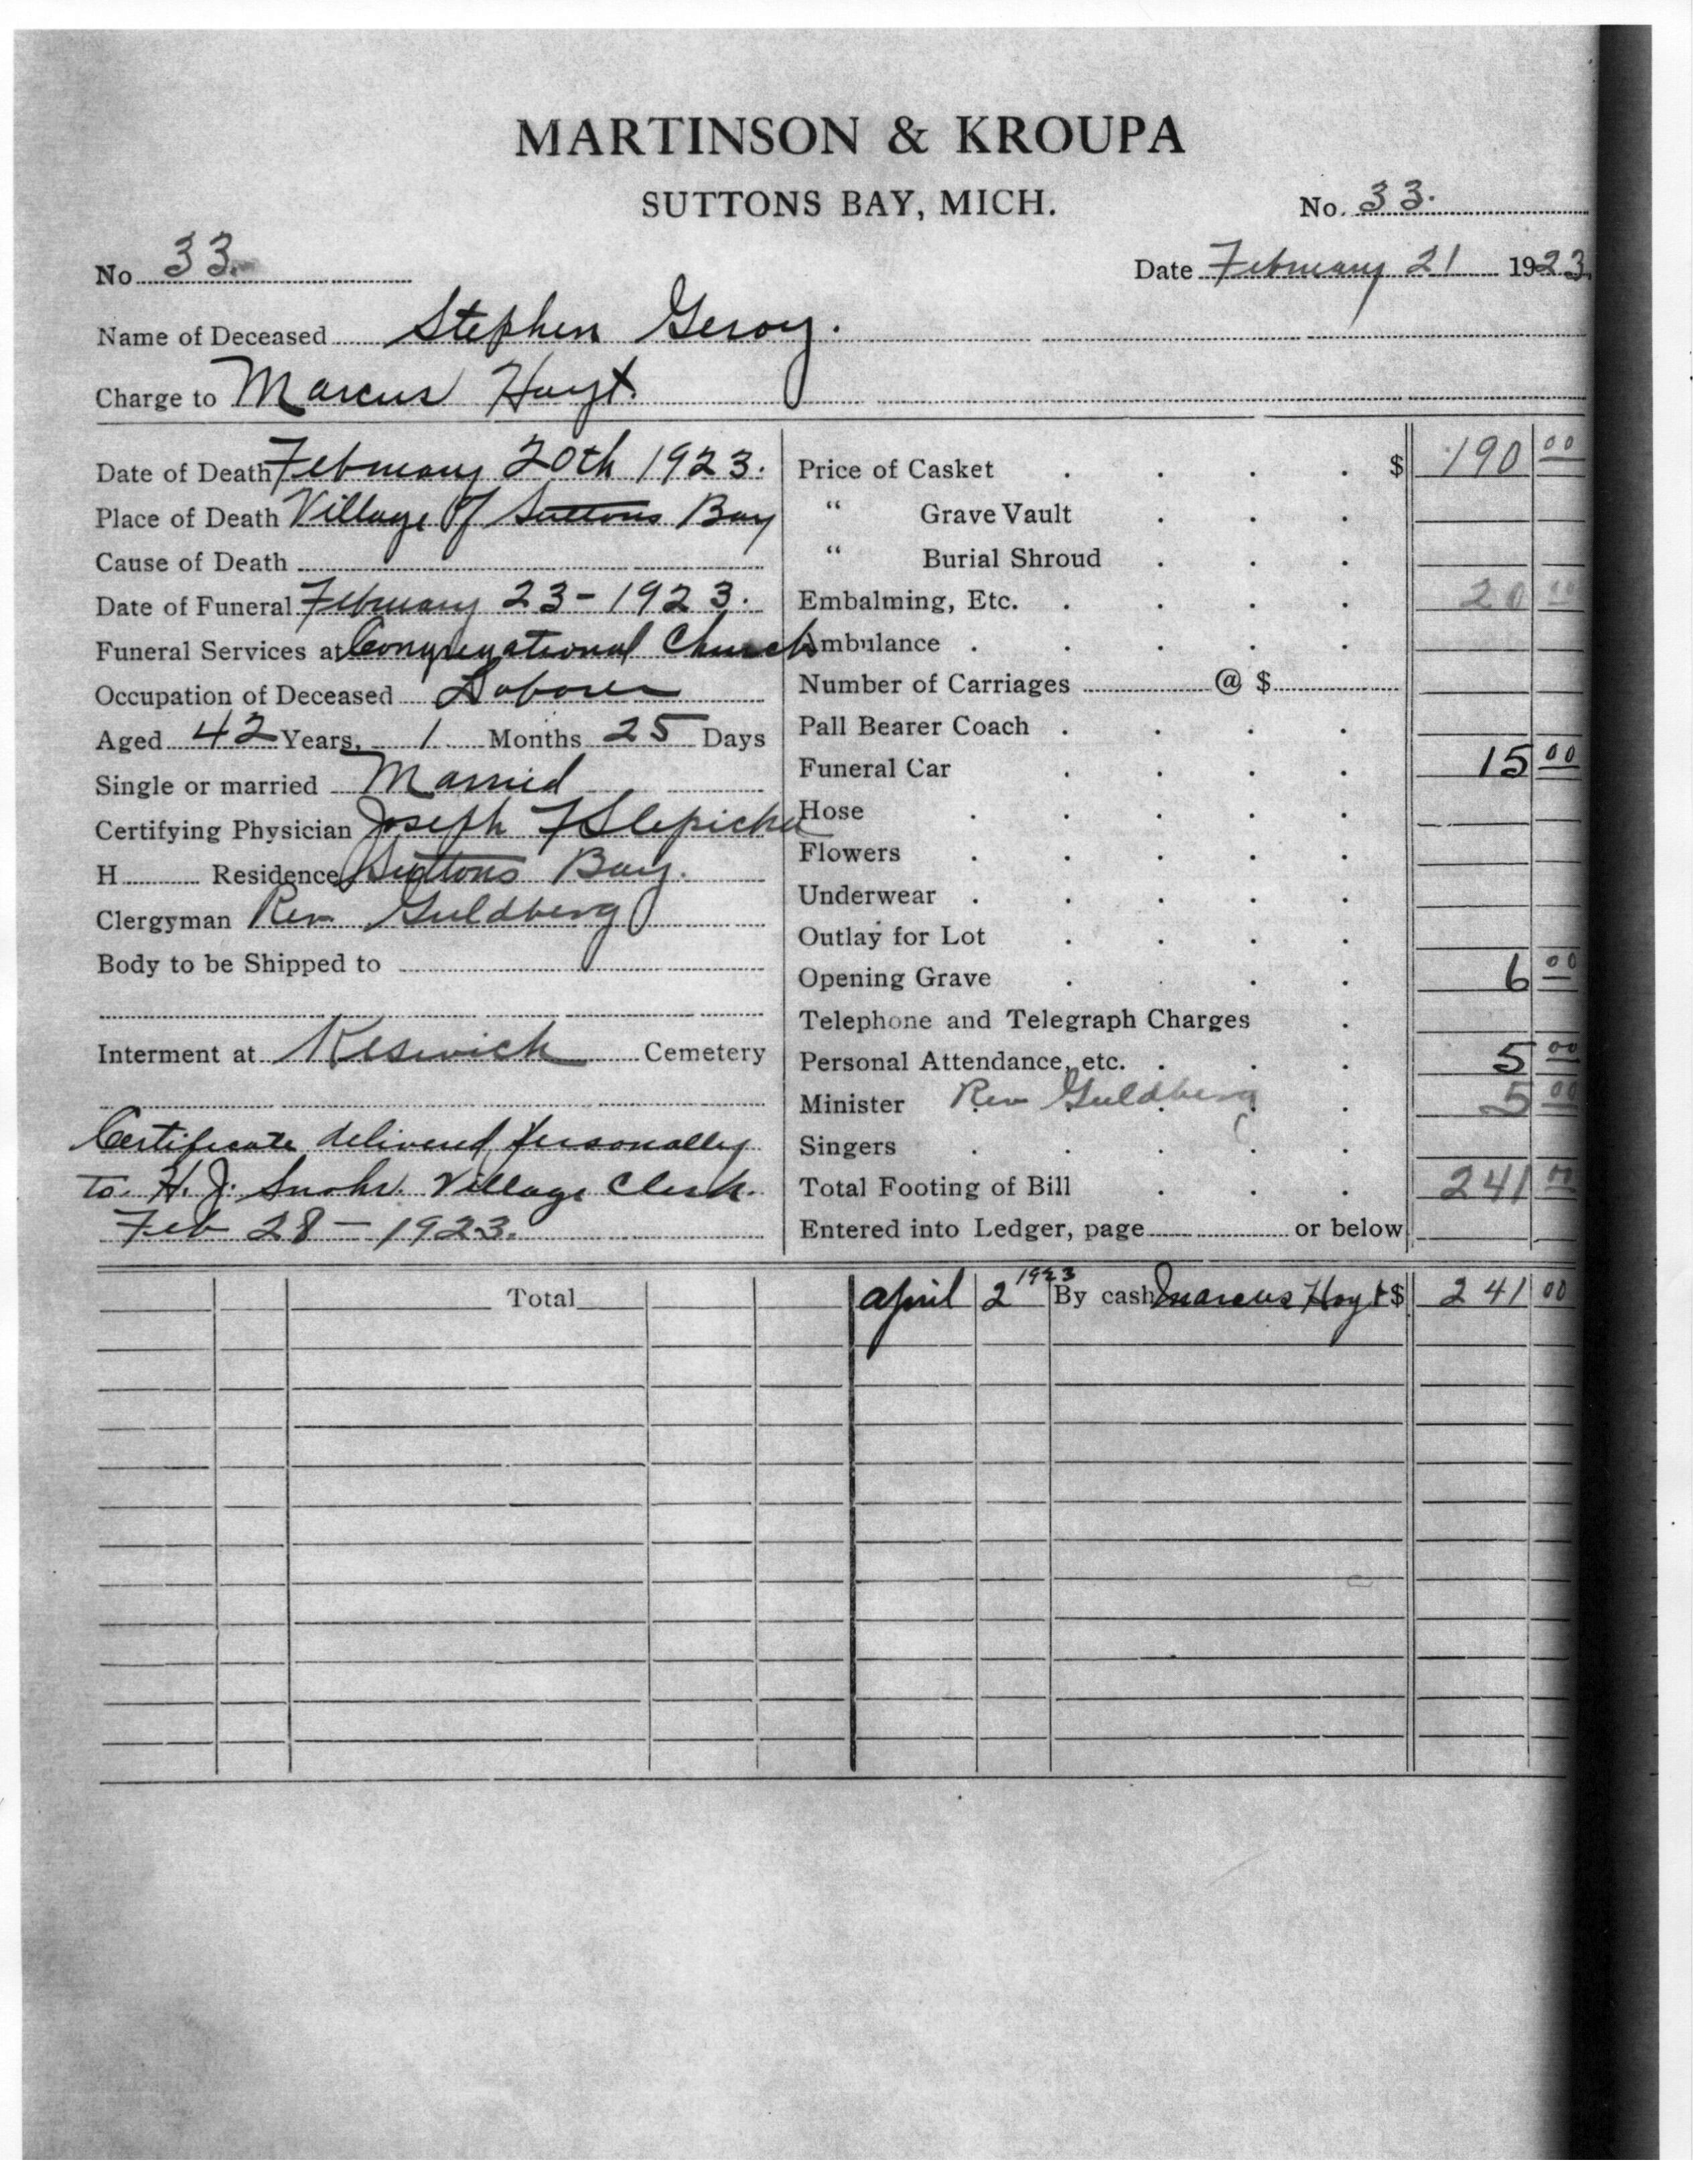 MARTINSON & KROUPA
SUTTONS BAY, MICH.
No. 33.
No 33.
Date February 21 1923.
Name of Deceased Stephen Geroy.
Charge to Marcus Hoyt.
Date of Death February 20th 1923.
Place of Death Village of Suttons Bay
Cause of Death
Date of Funeral February 23-1923.
Funeral Services at Congregational Church
Occupation of Deceased Laborer
Aged 42 Years, 1 Months 25 Days
Single or married Married
Certifying Physician Joseph F Slepicka
H Residence Suttons Bay.
Clergyman Rev Guldberg
Body to be Shipped to
Interment at Keswick Cemetery
Certificate delivered personally
to H. J. Village Clerk.
Feb 28-1923.
Price of Casket $ 190 00
" Grave Vault
" Burial Shroud
Embalming, Etc. 20 00
Ambulance
Number of Carriages @ $
Pall Bearer Coach
Funeral Car 15 00
Hose
Flowers
Underwear
Outlay for Lot
Opening Grave 6 00
Telephone and Telegraph Charges
Personal Attendance, etc. 5 00
Minister Rev Guldberg 5 00
Singers
Total Footing of Bill 241 00
Entered into Ledger, page or below
Total april 2 1923 By cash Marcus Hoyt $ 241 00